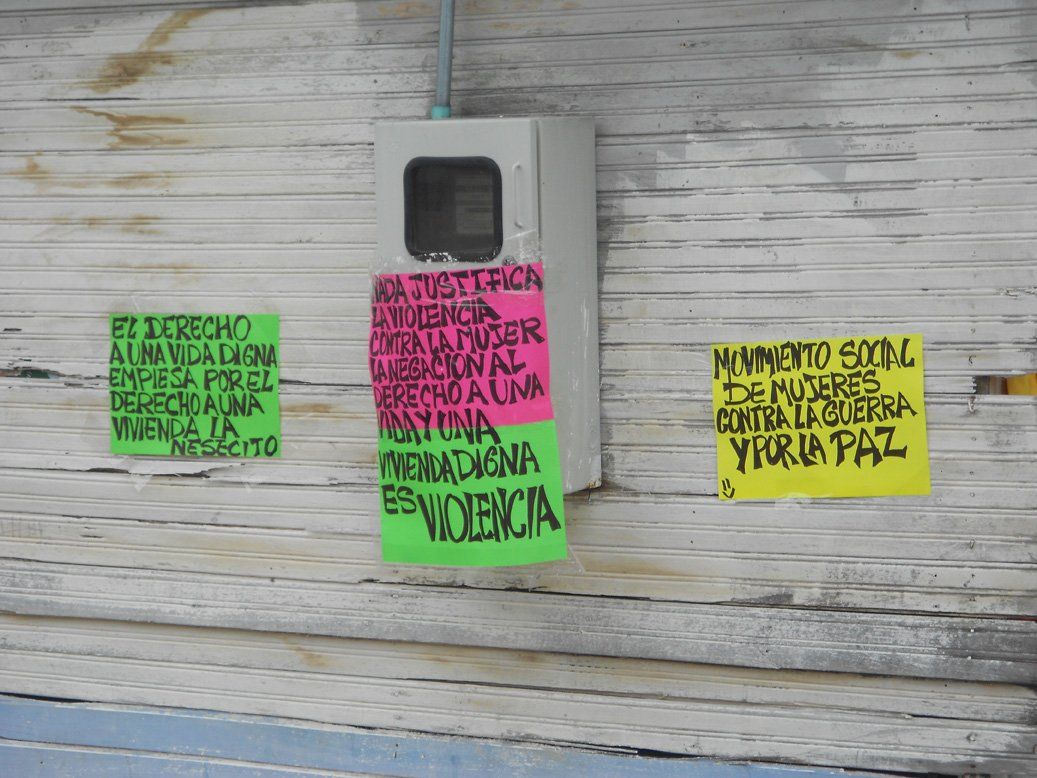 EL DERECHO
A UNA VIDA DIGNA
EMPIESA POR EL
DERECHO A UNA
VIVIENDA LA
NESECITO
NADA JUSTIFICA
LA VIOLENCIA
CONTRA LA MUJER
LA NEGACION AL
DERECHO A UNA
VIDA Y UNA
VIVIENDA DIGNA
ES VIOLENCIA
MOVIMIENTO SOCIAL
DE MUJERES
CONTRA LA GUERRA
Y POR LA PAZ